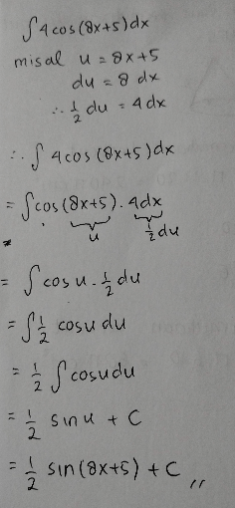 ∫ 4 cos (8x+5) dx
misal u = 8x+5
du = 8 dx
∴ 1/2 du = 4 dx
∴ ∫ 4 cos (8x+5) dx
= ∫ cos (8x+5) . 4dx
u 1/2 du
= ∫ cos u . 1/2 du
= ∫ 1/2 cos u du
= 1/2 ∫ cos u du
= 1/2 sin u + C
= 1/2 sin (8x+5) + C //